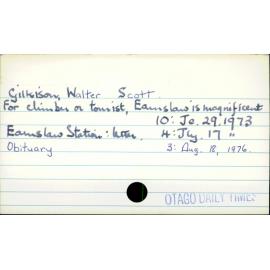 Gilkison, Walter Scott.
For climber or tourist, Earnslaw is magnificent
10: Je. 29. 1973
Earnslaw Station: letter. 4: Jly. 17 "
Obituary 3: Aug. 18, 1976.
OTAGO DAILY TIMES